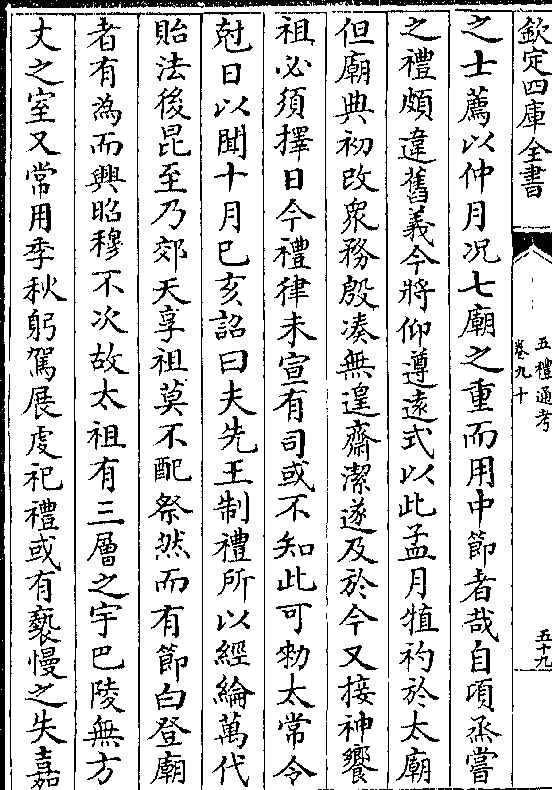 欽定四庫全書
五禮通考
卷九十
五十九
之士薦以仲月況七廟之重而用中節者哉自頃烝嘗
之禮頗違舊義今將仰遵遠式以此孟月犆礿於太廟
但廟典初改衆務殷湊無遑齋潔遂及於今又接神饗
祖必須擇日今禮律未宣有司或不知此可勅太常令
尅日以聞十月已亥詔曰夫先王制禮所以經綸萬代
貽法後昆至乃郊天享祖莫不配祭然而有節白登廟
者有為而興昭穆不次故太祖有三層之宇巴陵無方
丈之室又常用季秋躬駕展虔祀禮或有褻慢之失嘉